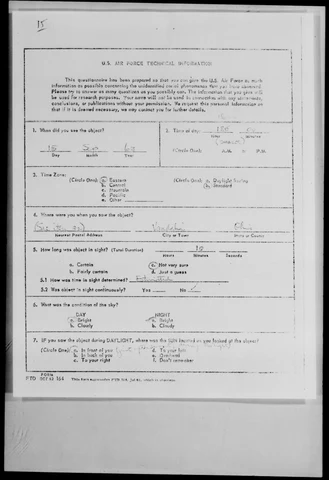 15
U.S. AIR FORCE TECHNICAL INFORMATION
This questionnaire has been prepared so that you can give the U.S. Air Force as much
information as possible concerning the unidentified aerial phenomenon that you have observed.
Please try to answer as many questions as you possibly can. The information that you give will
be used for research purposes. Your name will not be used in connection with any statements,
conclusions, or publications without your permission. We request this personal information so
that if it is deemed necessary, we may contact you for further details.
1. When did you see the object?
15
Day Month Year
2. Time of day:
Hour Minutes
(Circle One): A.M. or P.M.
3. Time Zone:
(Circle One): a. Eastern
b. Central
c. Mountain
d. Pacific
e. Other
(Circle One): a. Daylight Saving
b. Standard
4. Where were you when you saw the object?
Nearest Postal Address City or Town State or County
5. How long was object in sight? (Total Duration) 10
Hours Minutes Seconds
a. Certain c. Not very sure
b. Fairly certain d. Just a guess
5.1 How was time in sight determined?
5.2 Was object in sight continuously? Yes No
6. What was the condition of the sky?
DAY NIGHT
a. Bright a. Bright
b. Cloudy b. Cloudy
7. IF you saw the object during DAYLIGHT, where was the SUN located as you looked at the object?
(Circle One): a. In front of you d. To your left
b. In back of you e. Overhead
c. To your right f. Don't remember
FORM
FTD OCT 62 164